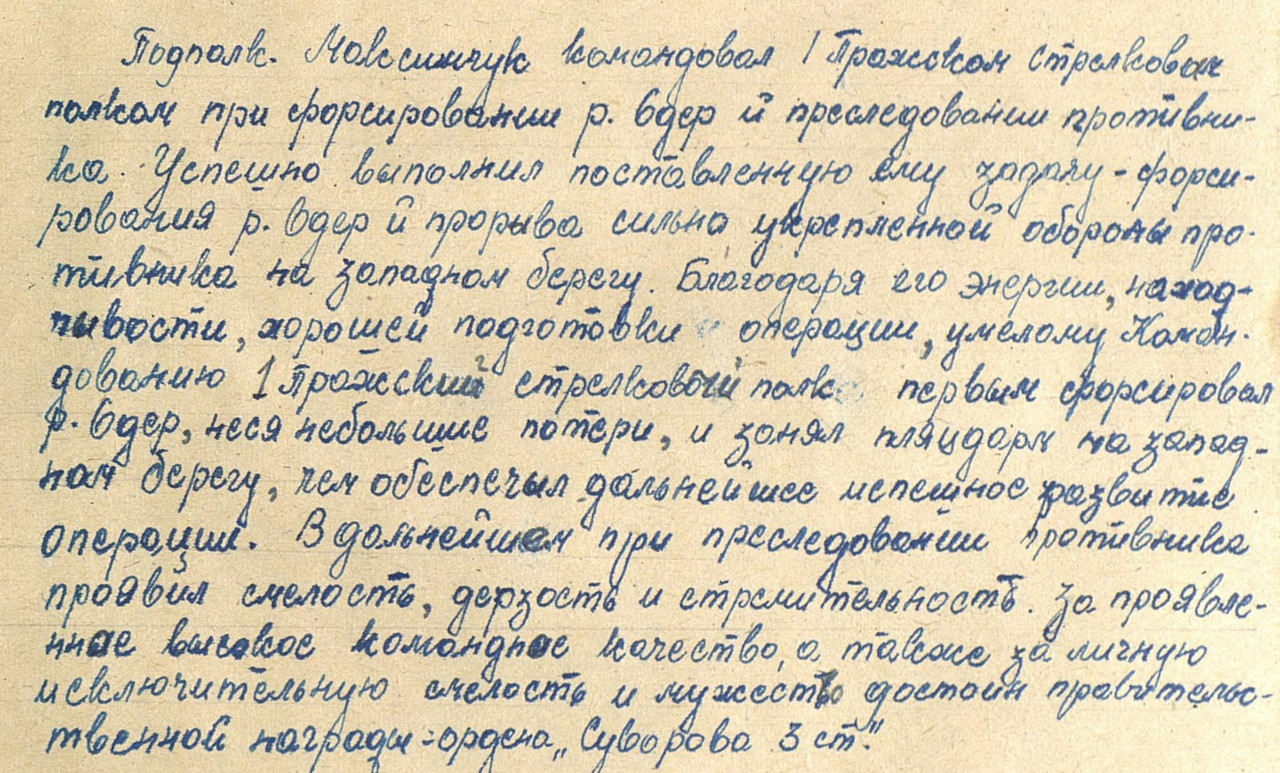 Подполк. Максимчук командовал 1 Пражском стрелковом
полком при форсировании р. Одер й преследовании противни-
ка. Успешно выполнил поставленную ему задачу - форси-
рования р. Одер й прорыва сильно укрепленной обороны про-
тивника на западном берегу. Благодаря его энергии, наход-
чывости, хорошей подготовки операции, умелому Коман-
дованию 1 Пражский стрелковый полк первым форсировал
р. Одер, неся небольшие потери, и занял пляцдарм на запад-
ном берегу, чем обеспечыл дальнейшее успешное развитие
операции. В дальнейшем при преследовании противника
проявил смелость, дерзость и стремительность. За проявле-
нное высокое командное качество, а также за личную
исключительную смелость и мужество достоин правительс-
твенной награды - ордена „Суворова 3 ст."